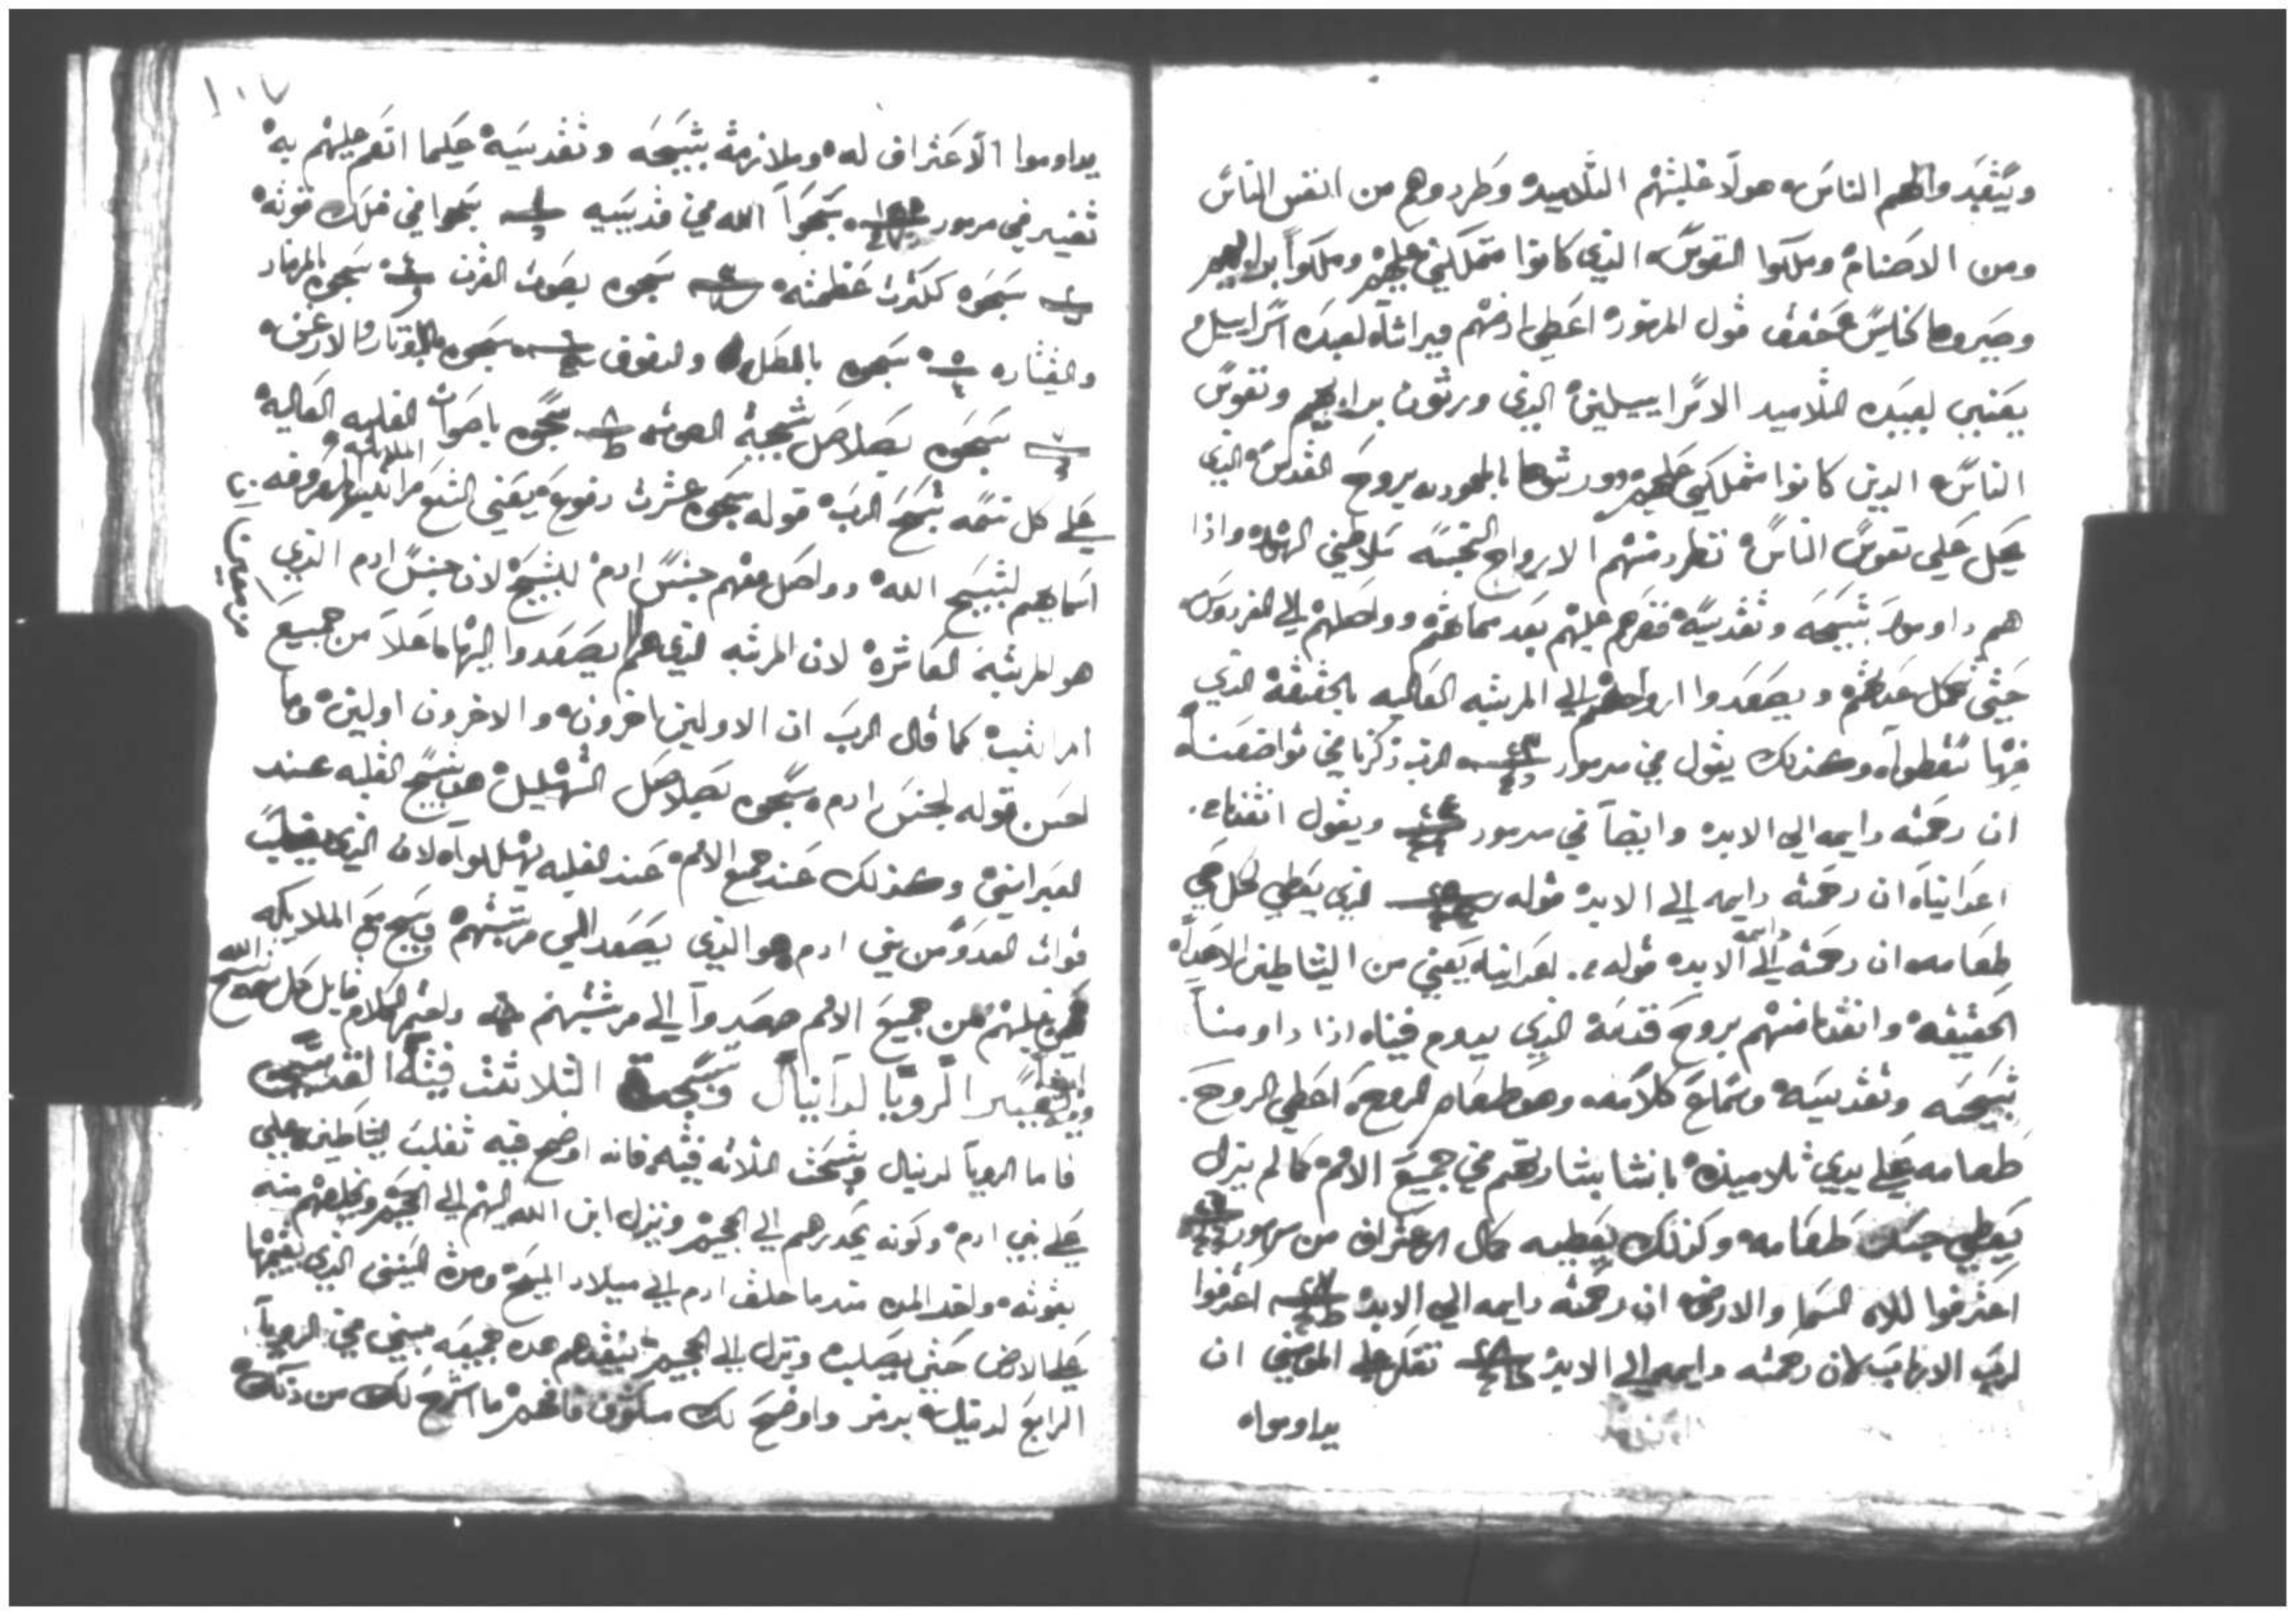 ويتعبدوا لهم الناس هولا غلبتهم التلاميد وطردوهم من انفس الناس
ومن الاصنام وملكوا النفوس الذي كانوا متملكين عليهم وملكوا
وصيروها كنايس حقق قول المزمور اعطي ارضهم ميراثا لعبده اسراييل
يعني لعبيده التلاميد الاسراييليين الذي ورثوا برابيهم ونفوس
الناس الدين كانوا متملكين عليهم وورثوها بالمعموديه بروح القدس الذي
يحل علي نفوس الناس تطرد منهم الارواح النجسه واذا
هم داوموا تسبيحه وتقديسه فرحم عليهم بعد مماتهم وواصلهم الي الفردوس
حيثي تكمل عدتهم ويصعدوا ارواحهم الي المرتبه العاليه بالحقيقه الذي
منها سقطوا وكذلك يقول في مزمور الرب ذكرنا في تواضعنا
ان رحمته دايمه الي الابد وايضا في مزمور ويقول انقذنا من
اعداينا ان رحمته دايمه الي الابد قوله الذي يعطي لكل حي
طعامه ان رحمته دايمه الي الابد قوله من اعداينا يعني من الشياطين الاعدا
الحقيقه وانقذنا منهم بروح قدسه الذي يدوم فينا اذا داومنا
تسبيحه وتقديسه وسماع كلامه وهو طعام الروح اعطي الروح
طعامه علي يدي تلاميذه بانشا بشارتهم في جميع الامم كما لم يزل
يعطي جسد طعامه وكذلك يعطيه كمال الاعتراف من مزمور
اعترفوا لالاه السما والارض ان رحمته دايمه الي الابد اعترفوا
لرب الارباب لان رحمته دايمه الي الابد المومنين ان
يداوموا
١٠٧
يداوموا الاعتراف له وملازمة تسبيحه وتقديسه عليما انعم عليهم به
تفسير في مزمور سبحوا الله في قديسيه سبحوا في فلك قوته
سبحوه لكثرت عظمته سبحوه بصوت القرن سبحوه بالمزمار
والقيتاره سبحوه بالطبل والدفوف سبحوه بالاوتار والارغن
سبحوه بصلاصل شجية الصوت سبحوه باصوات الغلبه العاليه
علي كل نسمه تسبح الرب قوله سبحوه عشرت دفوع يعني التسع مراتب الملايكه المعروفه
اسمايهم لتسبيح الله وواصل معهم جنس ادم للتسبيح لان جنس ادم الذي
هو المرتبه العاشره لان المرتبه الذي هم يصعدوا اليها اعلا من جميع
المراتب كما قال الرب ان الاولين اخرون والاخرون اولين وما
احسن قوله لجنس ادم سبحوه بصلاصل التهليل هو تسبيح الغلبه عند
العبرانيين وكذلك عند جميع الامم عند الغلبه يهللوا لان الذي يغلب
قوات العدو من بني ادم هو الذي يصعد الي مرتبتهم ويسبح مع الملايكه
عليهم من جميع الامم صعدوا الي مرتبتهم وختم الكلام قايل كل نسمه تسبح الله
ايضا
وتفسير الرويا لدانيال وتسبحة الثلاثت فتيه القديسين
فاما الرويا لدنيال وتسبحت الثلاثه فتيه فانه اوضح فيه تغلب الشياطين علي
علي بني ادم وكونه يحدرهم الي الجحيم ونزل ابن الله اليهم الي الجحيم ويخلصهم منه
بموته واخد المده مندما خلق ادم الي ميلاد المسيح ومدة السنين الذي يقيمها
علي الارض حتي يصلب وينزل الي الجحيم ينقدهم هده جميعه مبين في الرويا
الرابع لدنيال برمز واوضح لك مكثوف فافهم ما اشرح لك من ذلك